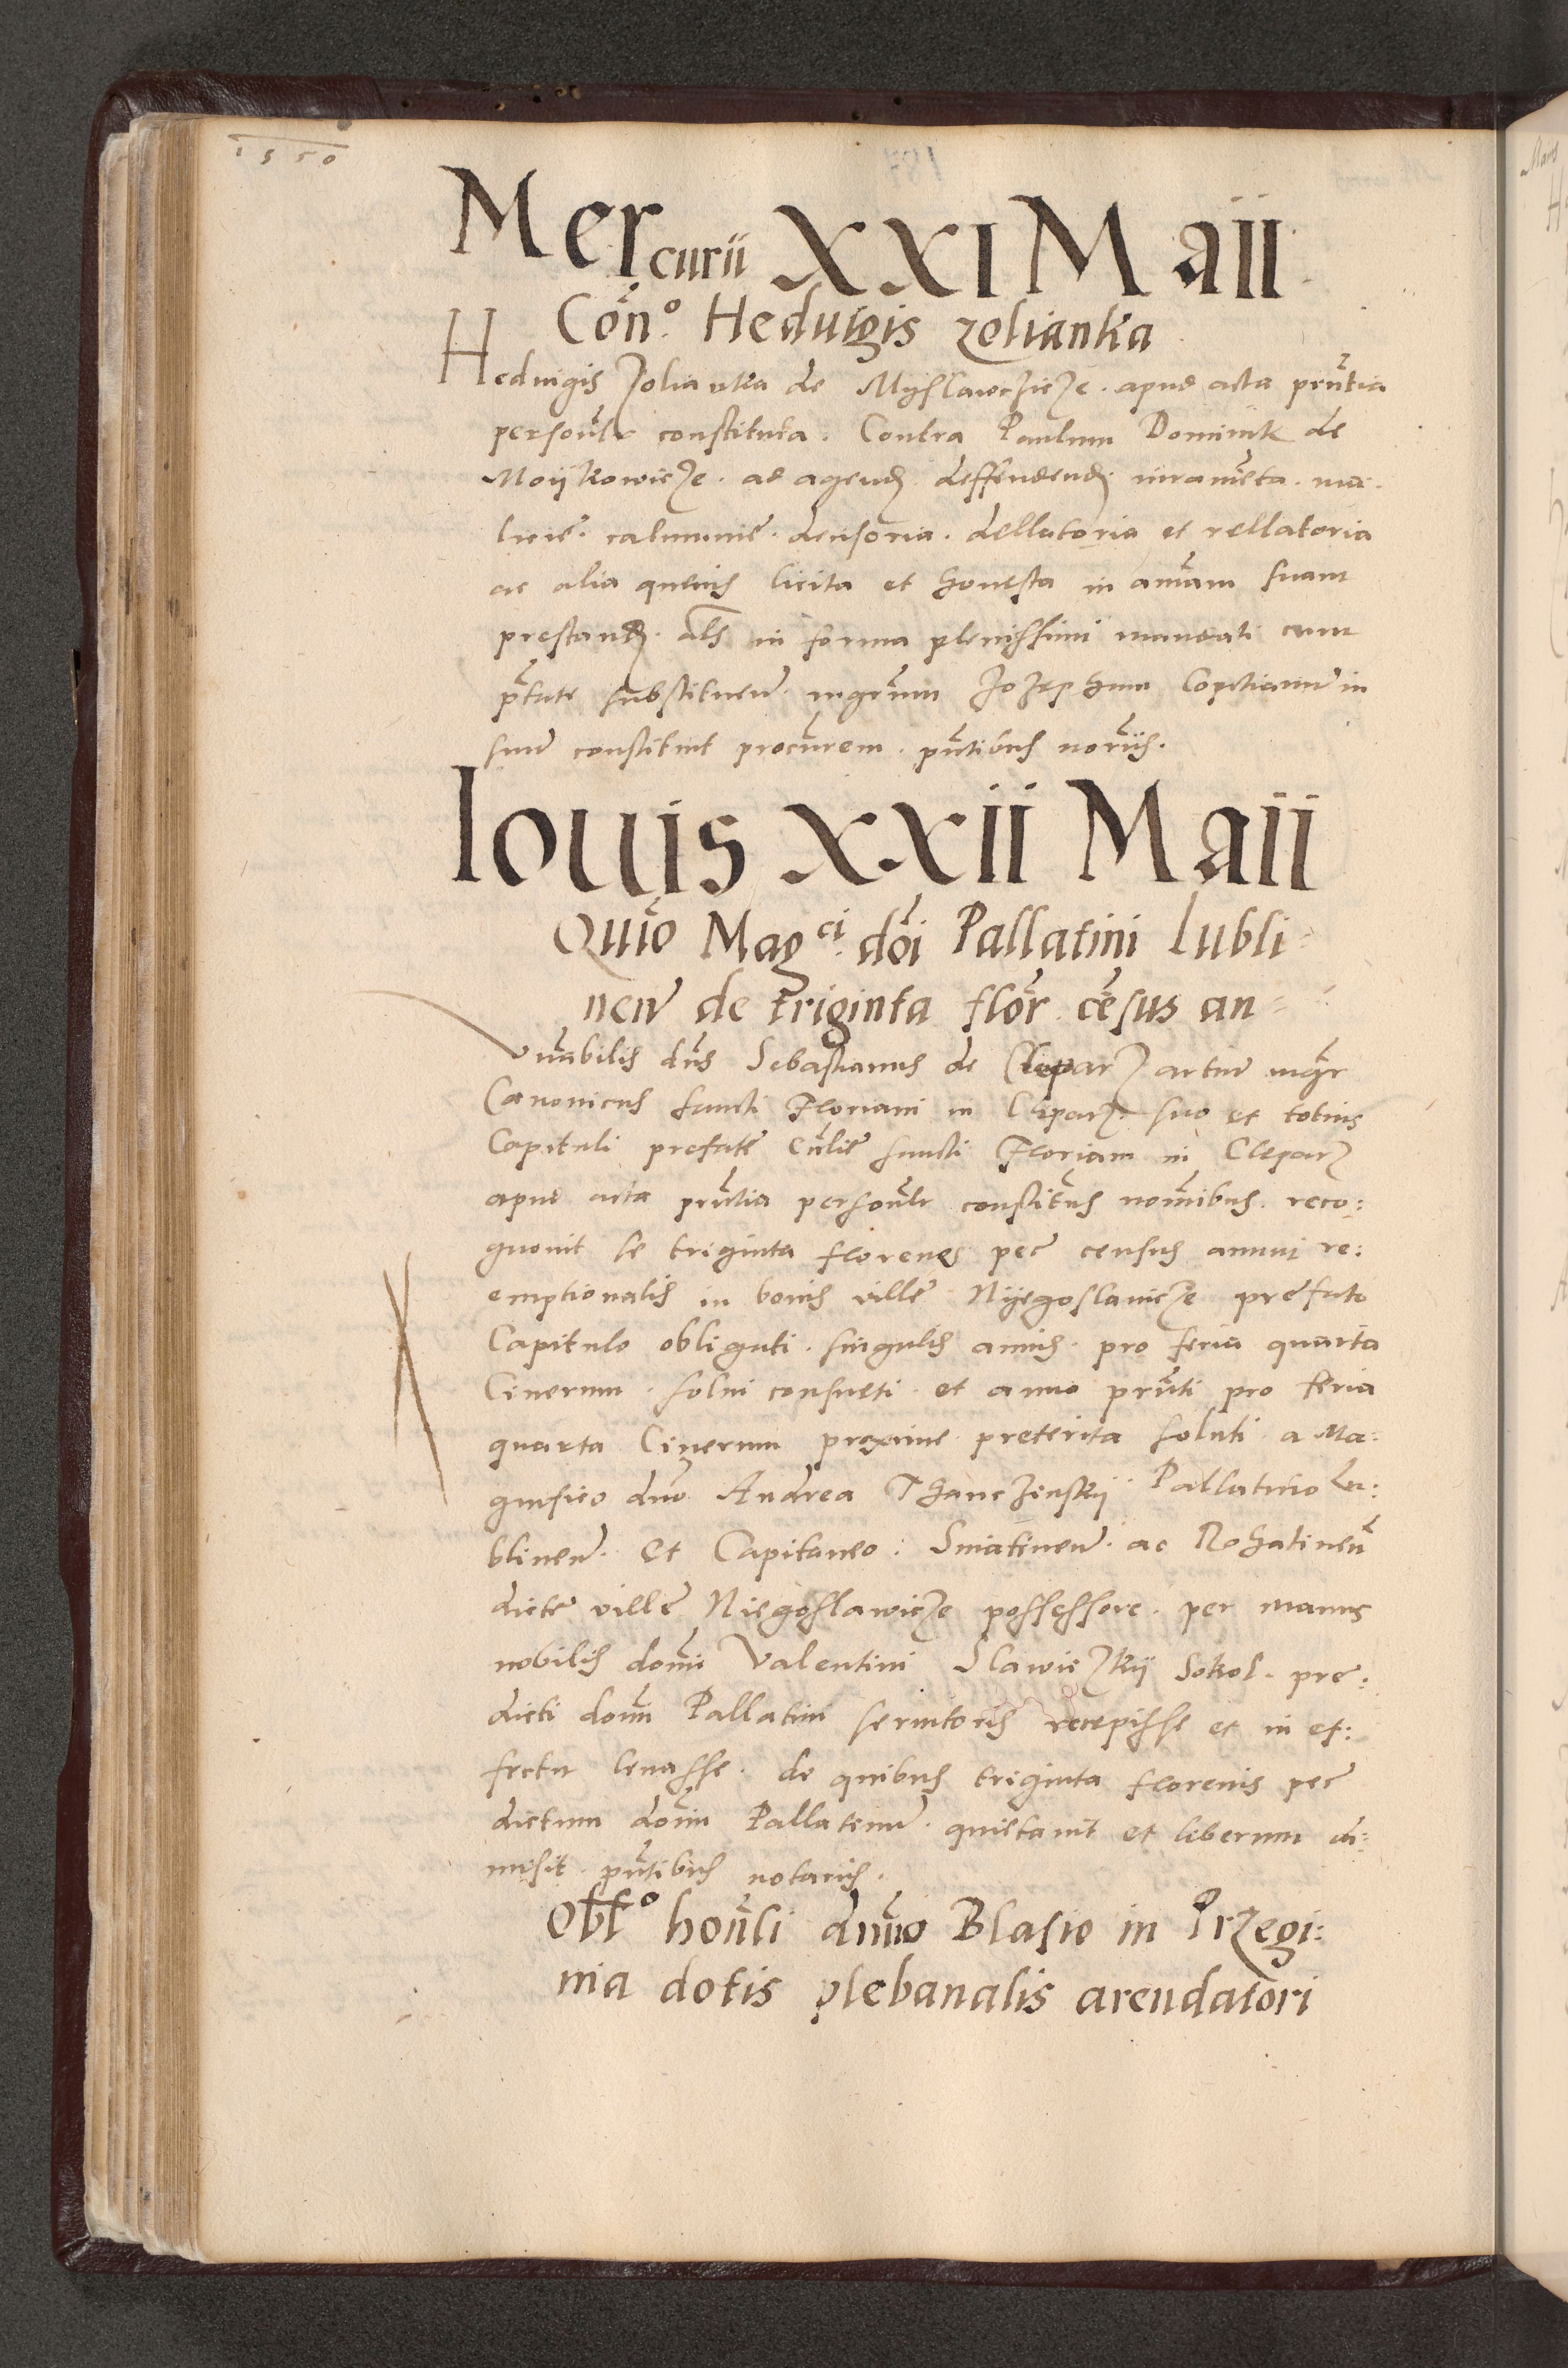 1550
Mercurii XXI Maii
Cõn.º Heduigis zelianka
Heduigis Zolianka de Myslawczicze. apud acta prñtia
personlr constituta. Contra Paulum Dominik de
Moijkowicze. ad agend deffendend iuramẽta. ma-
licie. calumnie. decisoria. dellatoria et rellatoria
ac alia queuis licita et honesta in aniãm suam
prestand. als in forma plenissimi mandati cum
ptãte substituen. mgrũm Jozephum in
suu constituit procurem. pñtibus noriis.
Iouis XXII Maii
Quiõ Magci. dõi Pallatini Lubli-
nen de triginta flõr. cẽsus an-
Vnabilis dns Sebastianus de Clepar artiu mgr
Canonicus sancti Floriani in Cleparz. suo et totius
Capituli prefate ecclie sancti Floriani in Clepar
apud acta prñtia personlr constitus noĩibus. reco:
gnouit se triginta florenos pec census annui re:
emptionalis in bonis ville Nijegoslauicze prefato
Capitulo obligati. singulis annis. pro feria quarta
Cinerum. solui consueti. et anno prñti pro feria
quarta Cinerum proxime preterita soluti. a Ma-
gnifico dno Andrea Thanczinskij Pallatino Lu:
blinen. Et Capitaneo. Sniatinen. ac Rohatinen
dicte ville Niegoslawicze possessore. per manus
nobilis domi Valentini Slawiczkij Sokol. pre:
dicti domi Pallatini seruitoris recepisse et in ef:
fectu leuasse. de quibus triginta florenis pec
dictum domi Pallatinu. quietauit et liberum di:
misit. pñtibus notariis.
Oblº honli dnno Blasio in Przegi:
nia dotis plebanalis arendatori